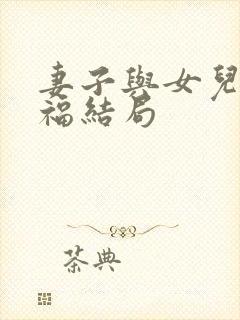 妻子與女兒
福結局
茶典